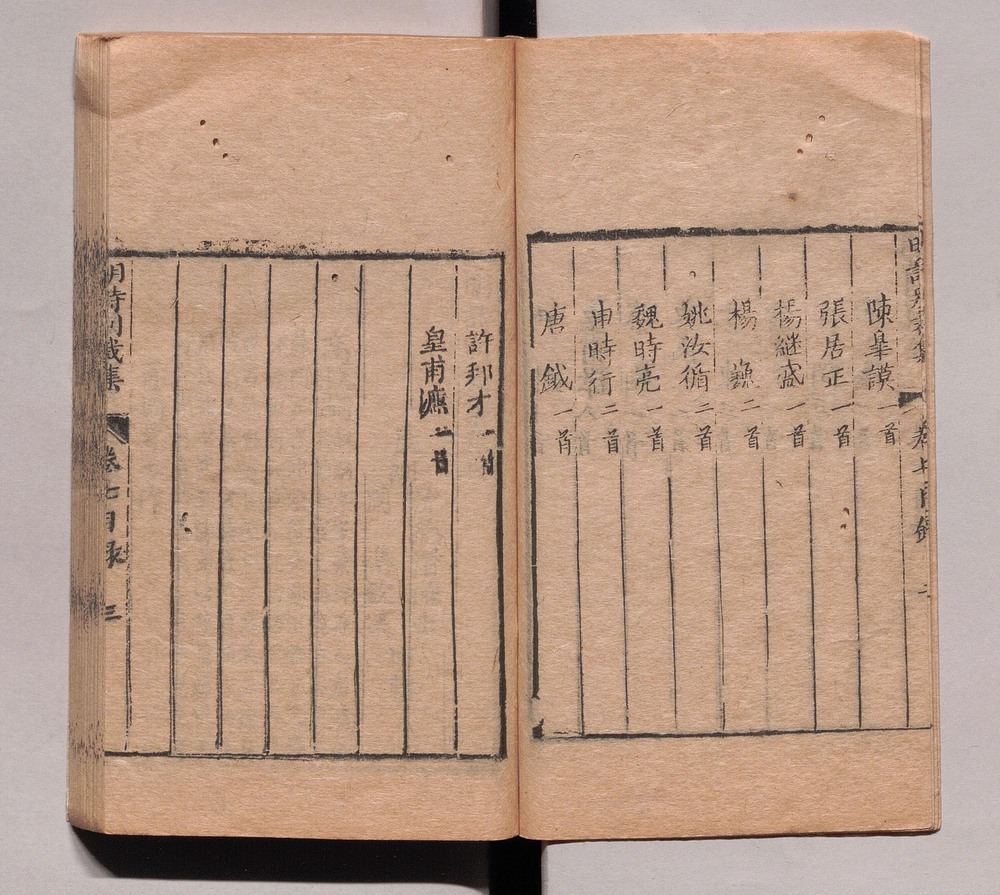 陳臯謨 一首
張居正 一首
楊繼盛 一首
楊巍 二首
姚汝循 二首
魏時亮 一首
申時行 二首
唐鉞 一首
卷七目錄 二
許邦才 一首
皇甫濂 一首
明詩別裁集 卷七目录 三